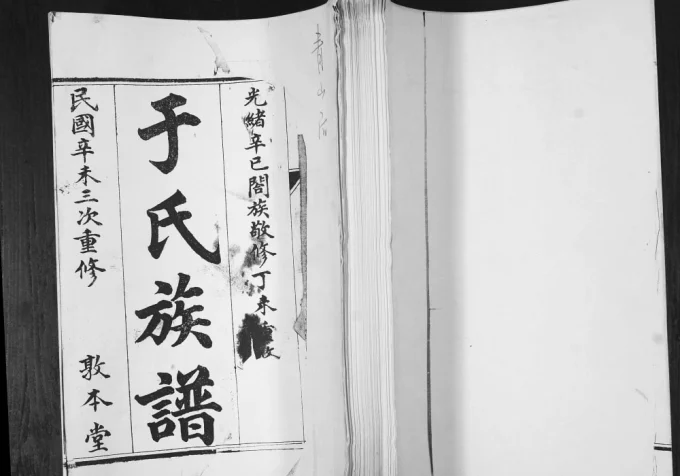 光緒辛巳閤族敬修丁未
于氏族譜
民國辛未三次重修 敦本堂